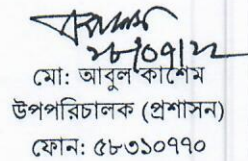 ২৮/০৭/২২
মো: আবুল কাশেম
উপপরিচালক (প্রশাসন)
ফোন: ৫৮৩১০৭৭০